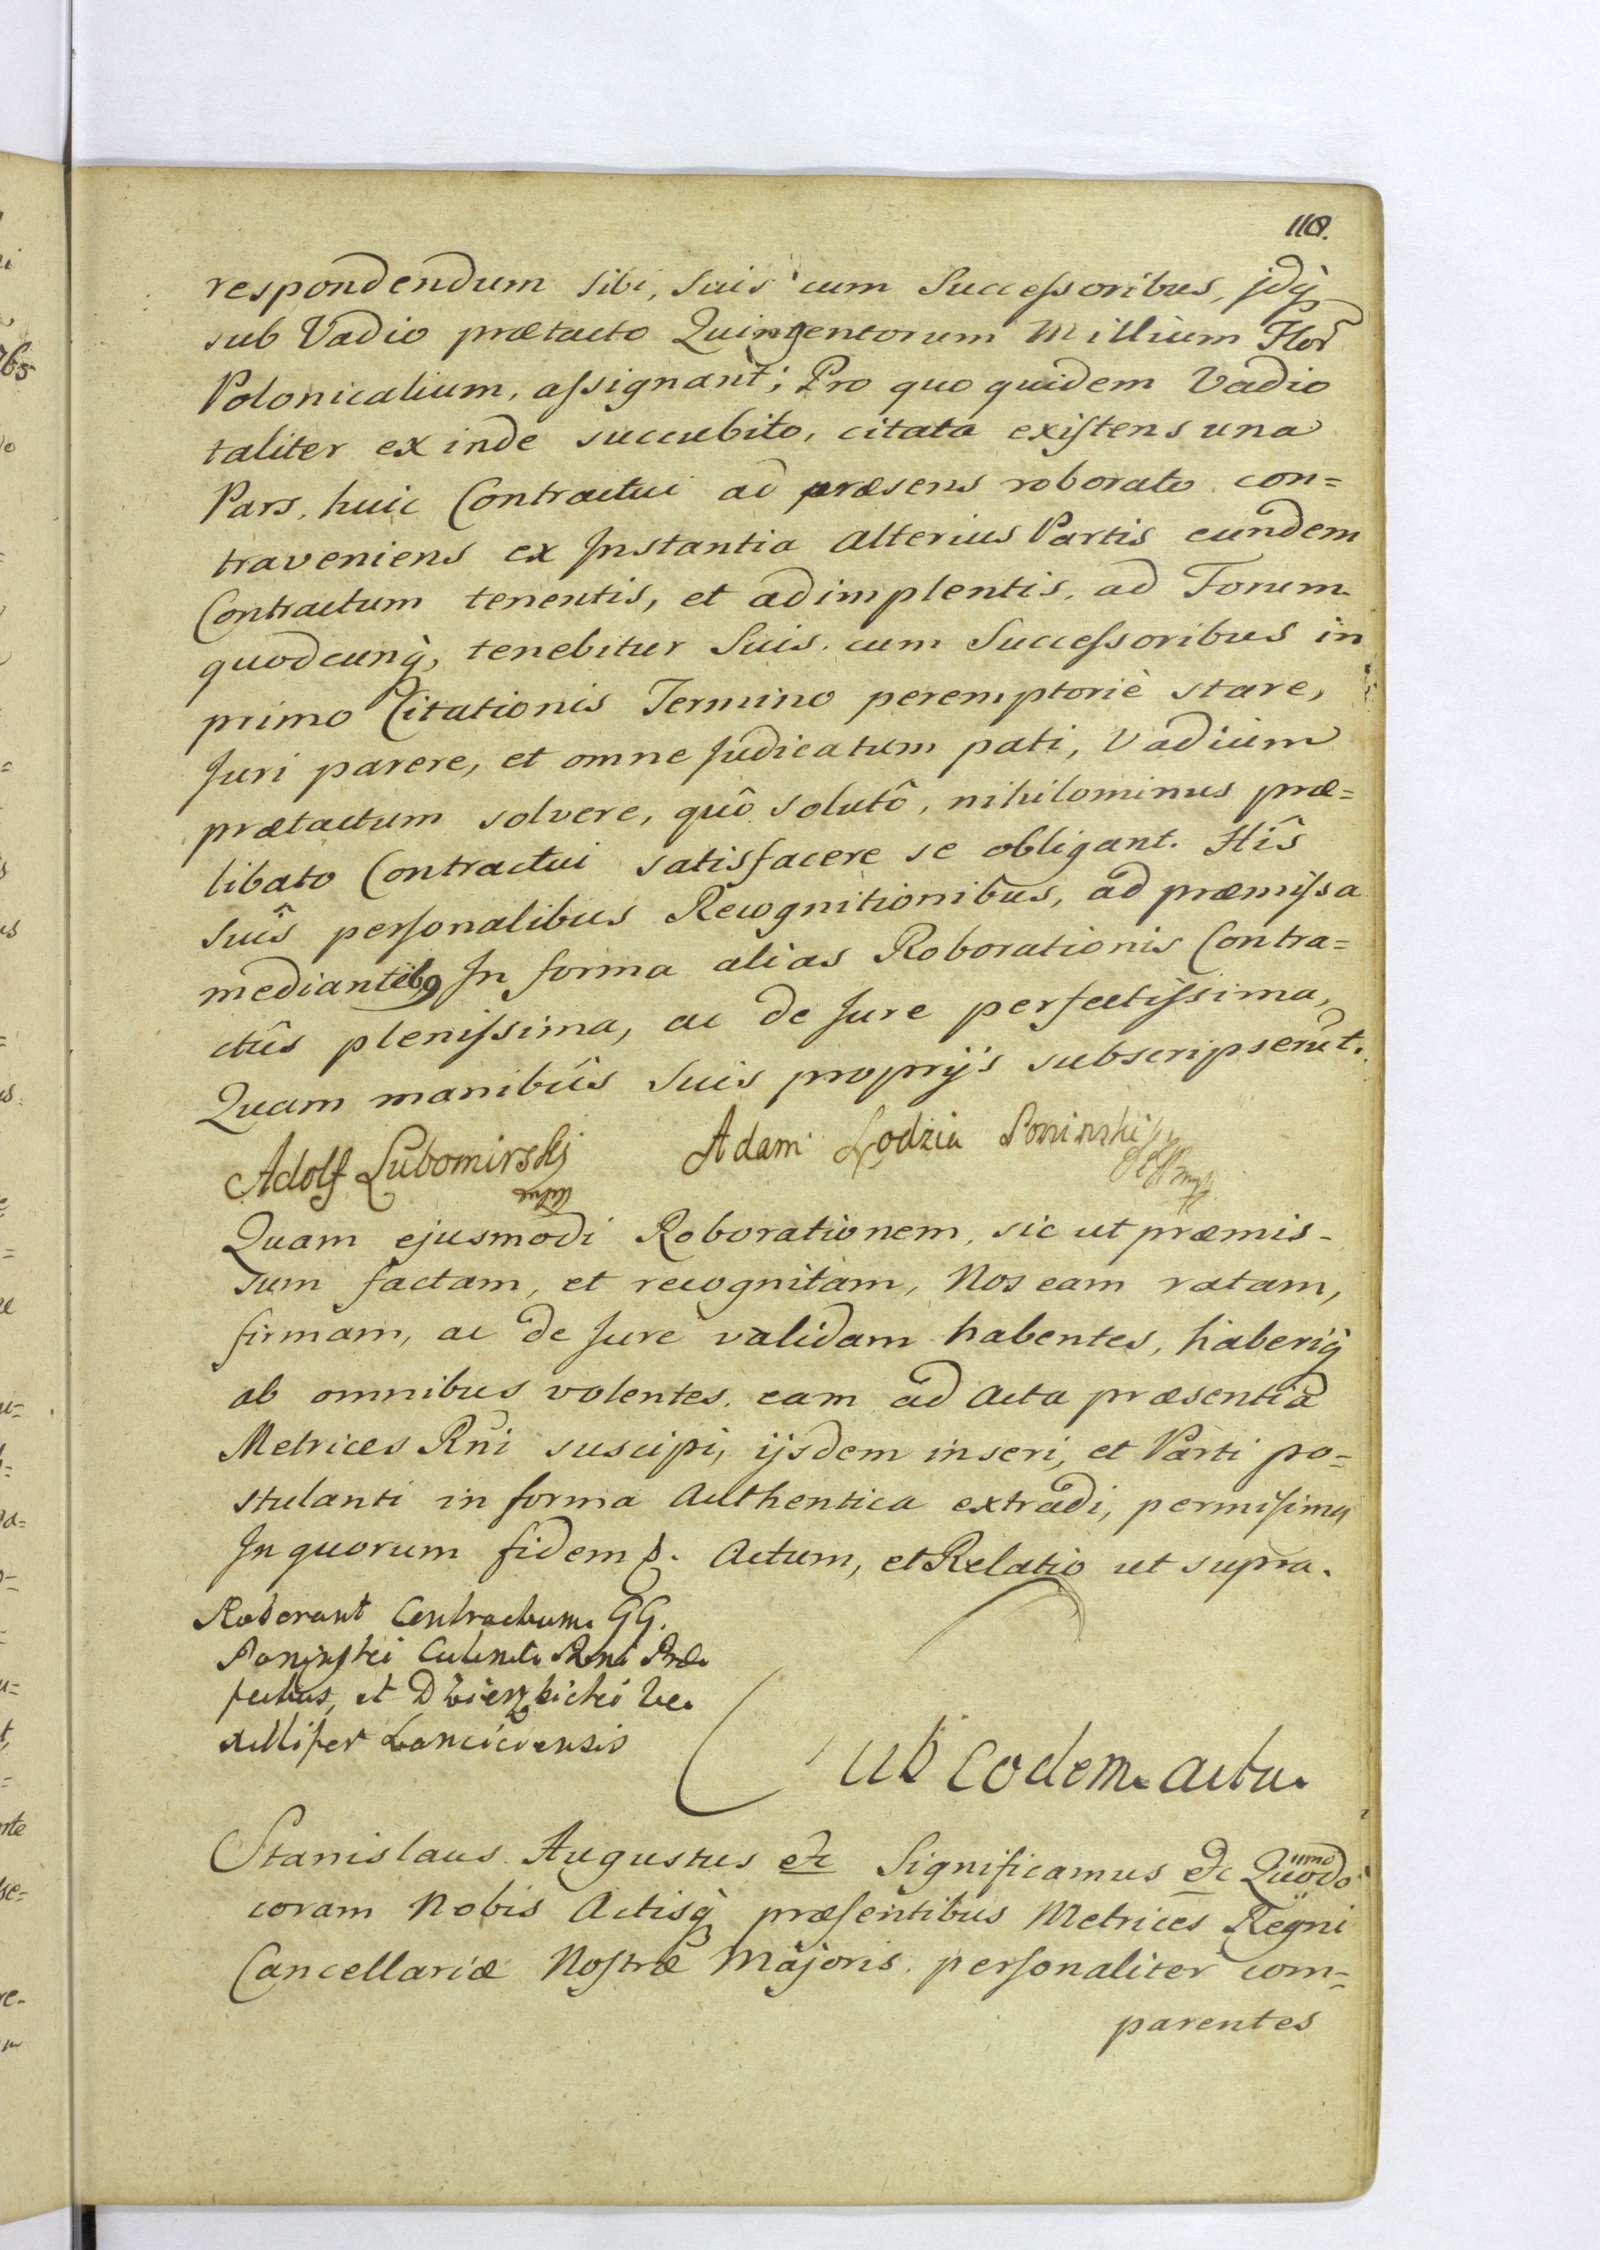 118.
respondendum sibi, suis cum Successoribus, jdq̀
sub Vadio prætacto Quingentorum Millium Flor
Polonicalium, assignant; Pro quo quidem Vadio
taliter ex inde succubito, citata existens una
Pars, huic Contractui ad præsens roborato con=
traveniens ex Instantia alterius Partis eundem
Contractum tenentis, et adimplentis, ad Forum
quodcunq̀, tenebitur Suis cum Successoribus in
primo Citationis Termino peremptoriè stare,
Juri parere, et omne Judicatum pati, Vadium
prætactum solvere, quô solutô, nihilominus præ=
libato Contractui satisfacere se obligant. Hîs
suîs personalibus Recognitionibus, ad præmissa
mediantib9 In forma alias Roborationis Contra=
ctûs plenissima, ac de Jure perfectissima,
Quam manibûs Suis proprijs subscripserūt.
Adolf Lubomirskj
Adam Lodzia Poninski
Quam ejusmodi Roborationem, sic ut præmis-
sum factam, et recognitam, Nos eam ratam,
firmam, ac de Jure validam habentes, haberiq̀
ab omnibus volentes, eam ad acta præsentia
Metrices Rñi suscipi, ijsdem inseri, et Parti po=
stulanti in forma Authentica extradi, permisimus
In quorum fidem Actum, et Relatio ut supra.
Roborant Contractum GG.
Poninski Culin. Regni Præ
fectus, et Dzierzbicki Ve
xillifer Lanciciensis
Sub eodem actu.
Stanislaus Augustus etc Significamus etc Quomodo
coram Nobis Actisq̀ præsentibus Metrices Regni
Cancellariæ Nostræ Majoris personaliter com=
parentes